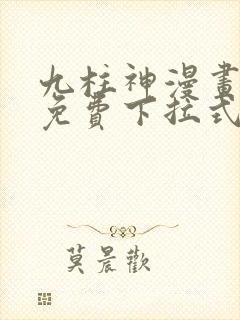 九柱神漫畫
免費下拉式
莫晨歡